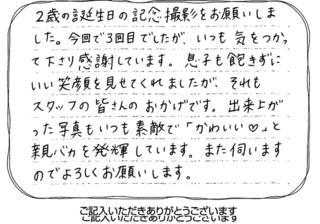 2歳の誕生日の記念撮影をお願いしま
した。今回で3回目でしたが、いつも気をつかっ
て下さり感謝しています。息子も飽きずに
いい笑顔を見せてくれましたが、それも
スタッフの皆さんのおかげです。出来上が
った写真もいつも素敵で「かわいい♡」と
親バカを発揮しています。また伺います
のでよろしくお願いします。
ご記入いただきありがとうございます
ご記入いただきありがとうございます